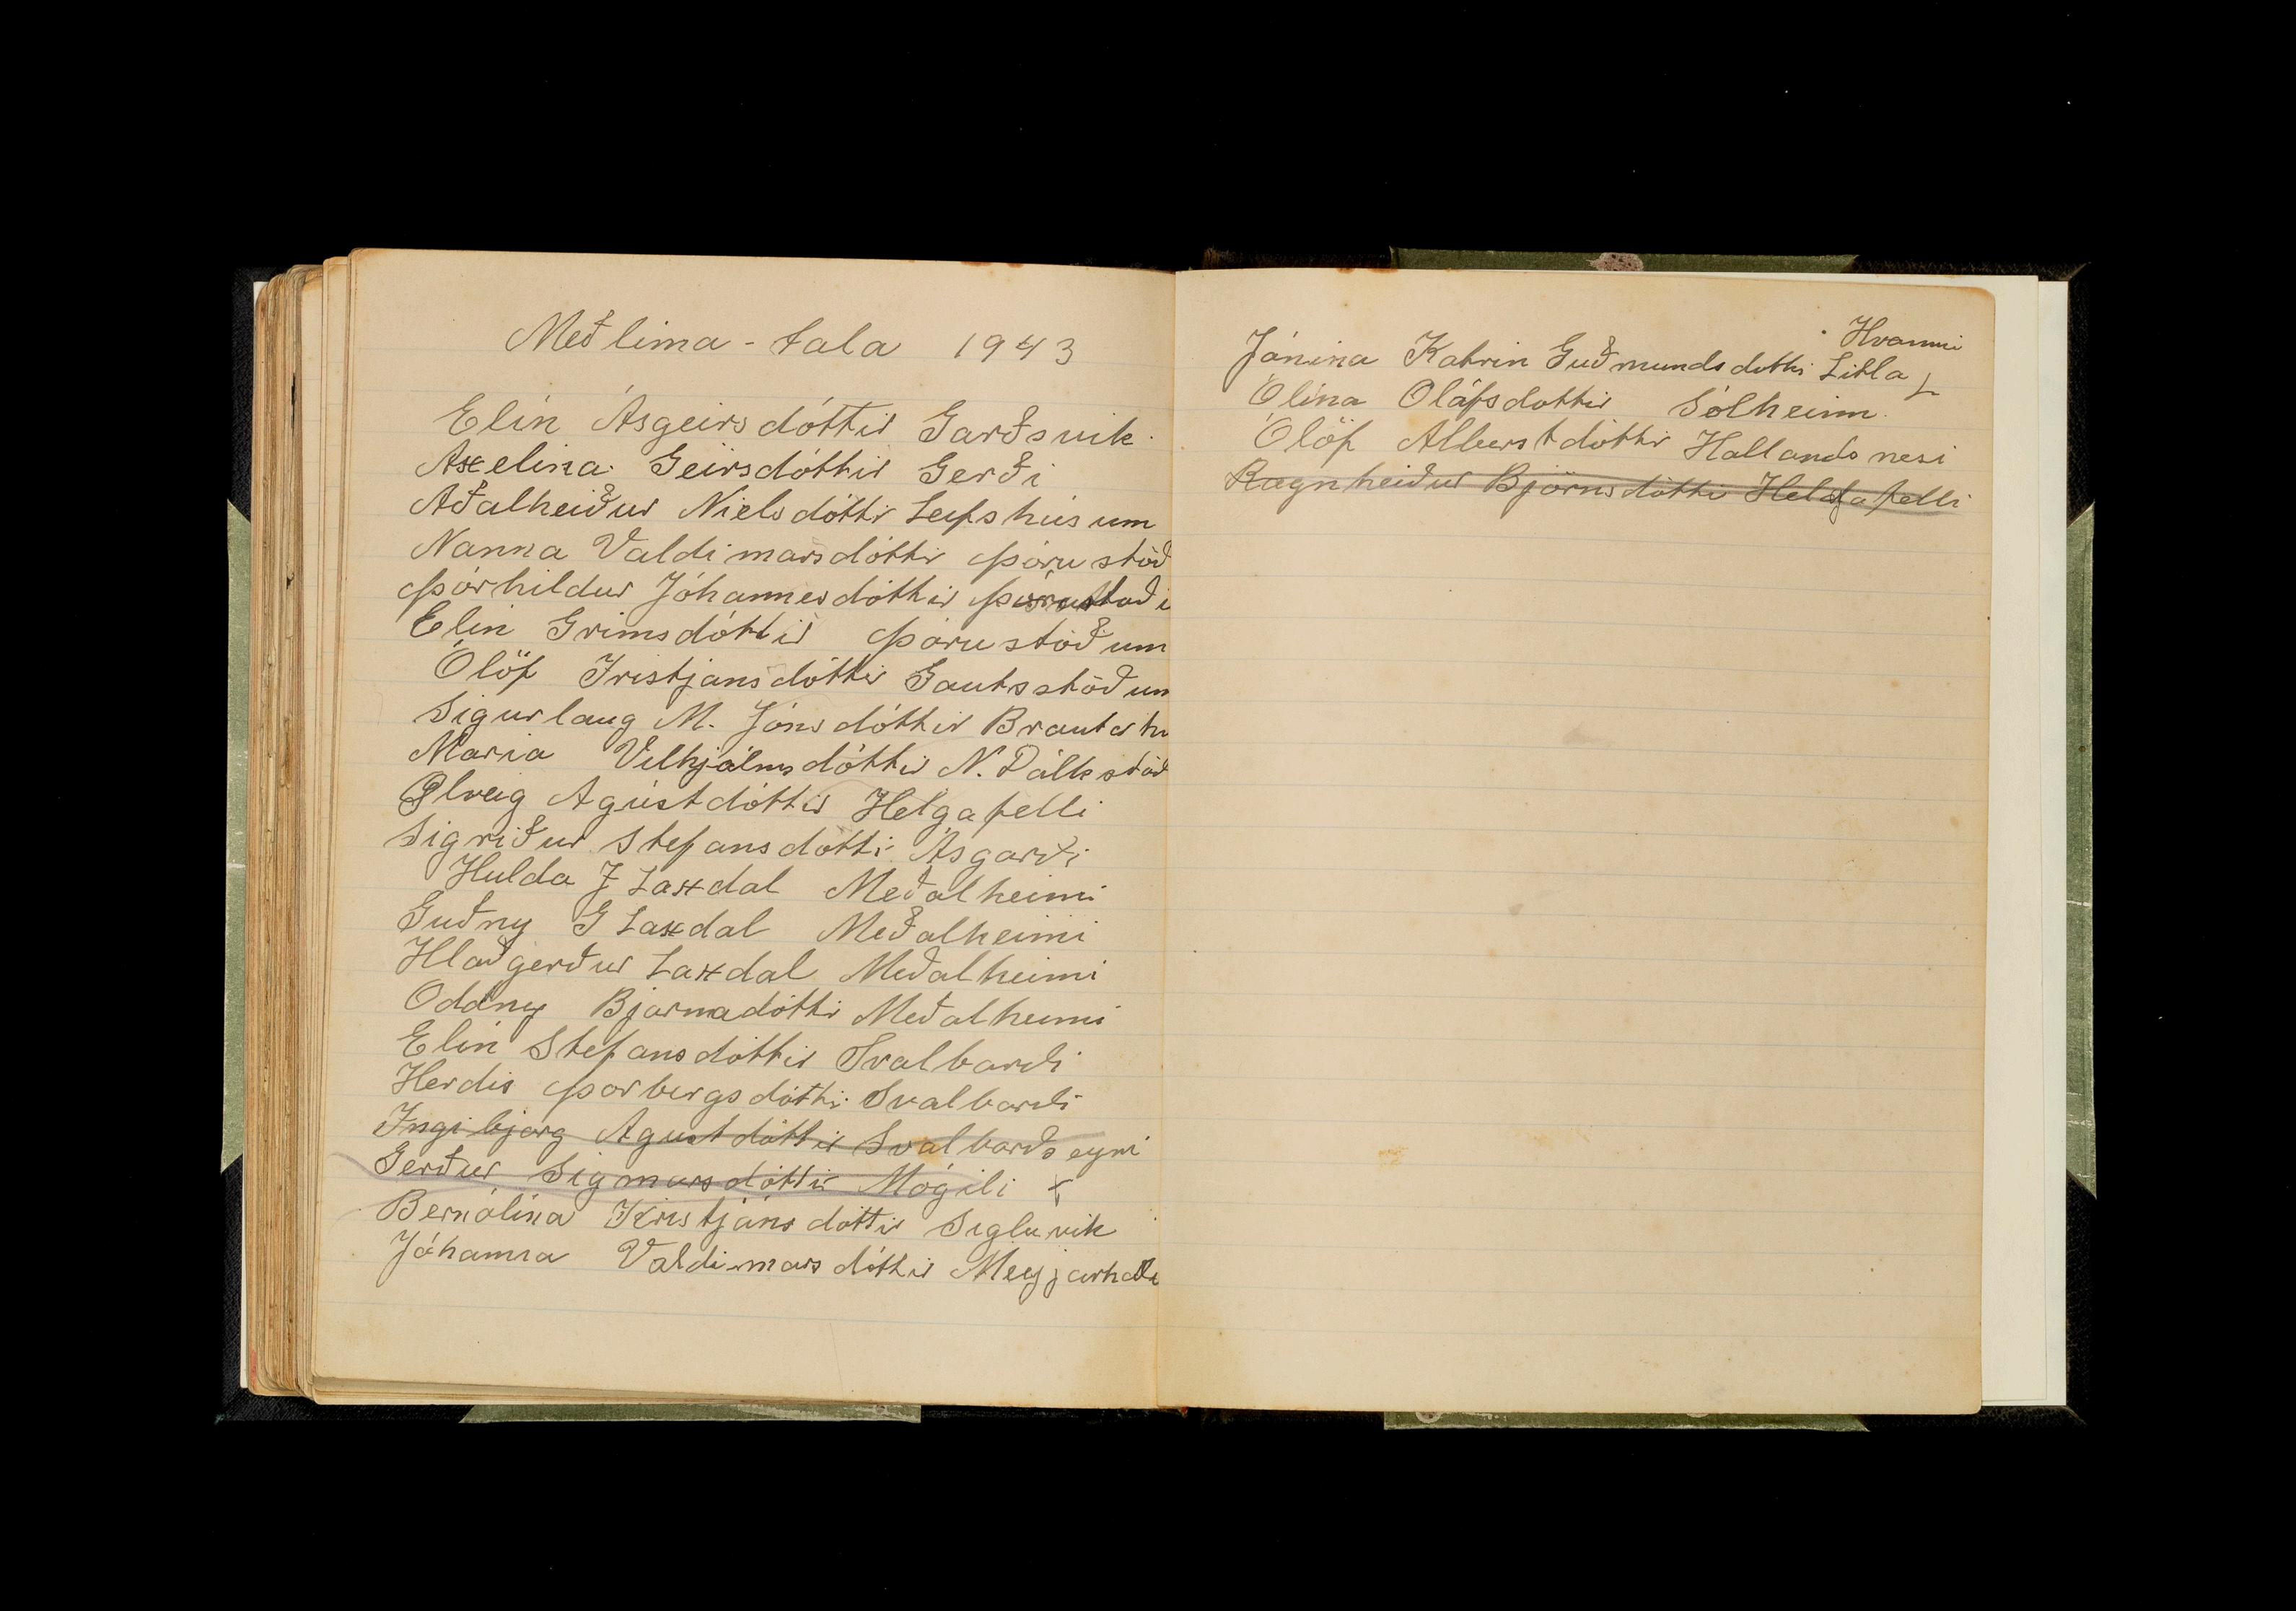 Meðlima-tala 1943
Elín Ásgeirsdóttir Garðsvík.
Axelína Geirsdóttir Gerði
Aðalheiður Níelsdóttir Leifshúsum
Nanna Valdimarsdóttir Þórustöð
Þórhildur Jóhannesdóttir Þórustaði
Elín Grímsdóttir Þórustöðum
Ólöf Kristjansdóttir Gautsstöðum
Sigurlaug M. Jónsdóttir Brautarh
Maria Vilhjálmsdóttir N. Dálkstöð
Ólveig Agústdóttir Helgafelli
Sigríður Stefansdóttir Ásgarði
Hulda J Laxdal Meðalheimi
Guðny G Laxdal Meðalheimi
Hlaðgerður Laxdal Meðalheimi
Oddny Bjarnadóttir Meðalheimi
Elín Stefansdóttir Svalbarði
Herdis Þorbergsdóttir Svalbarði
Ingibjorg Agustdóttir Svalbarðseyri
Gerður Sigmarsdóttir Mógili x
Bernólína Kristjánsdóttir Sigluvik
Jóhanna Valdimarsdóttir Meyjarhóli
Hvammi
Jónina Katrin Guðmundsdottir Litla
Ólína Oláfsdottir Sólheim.
Ólöf Alberstdóttir Hallandsnesi
Ragnheiður Björnsdóttir Helgafelli